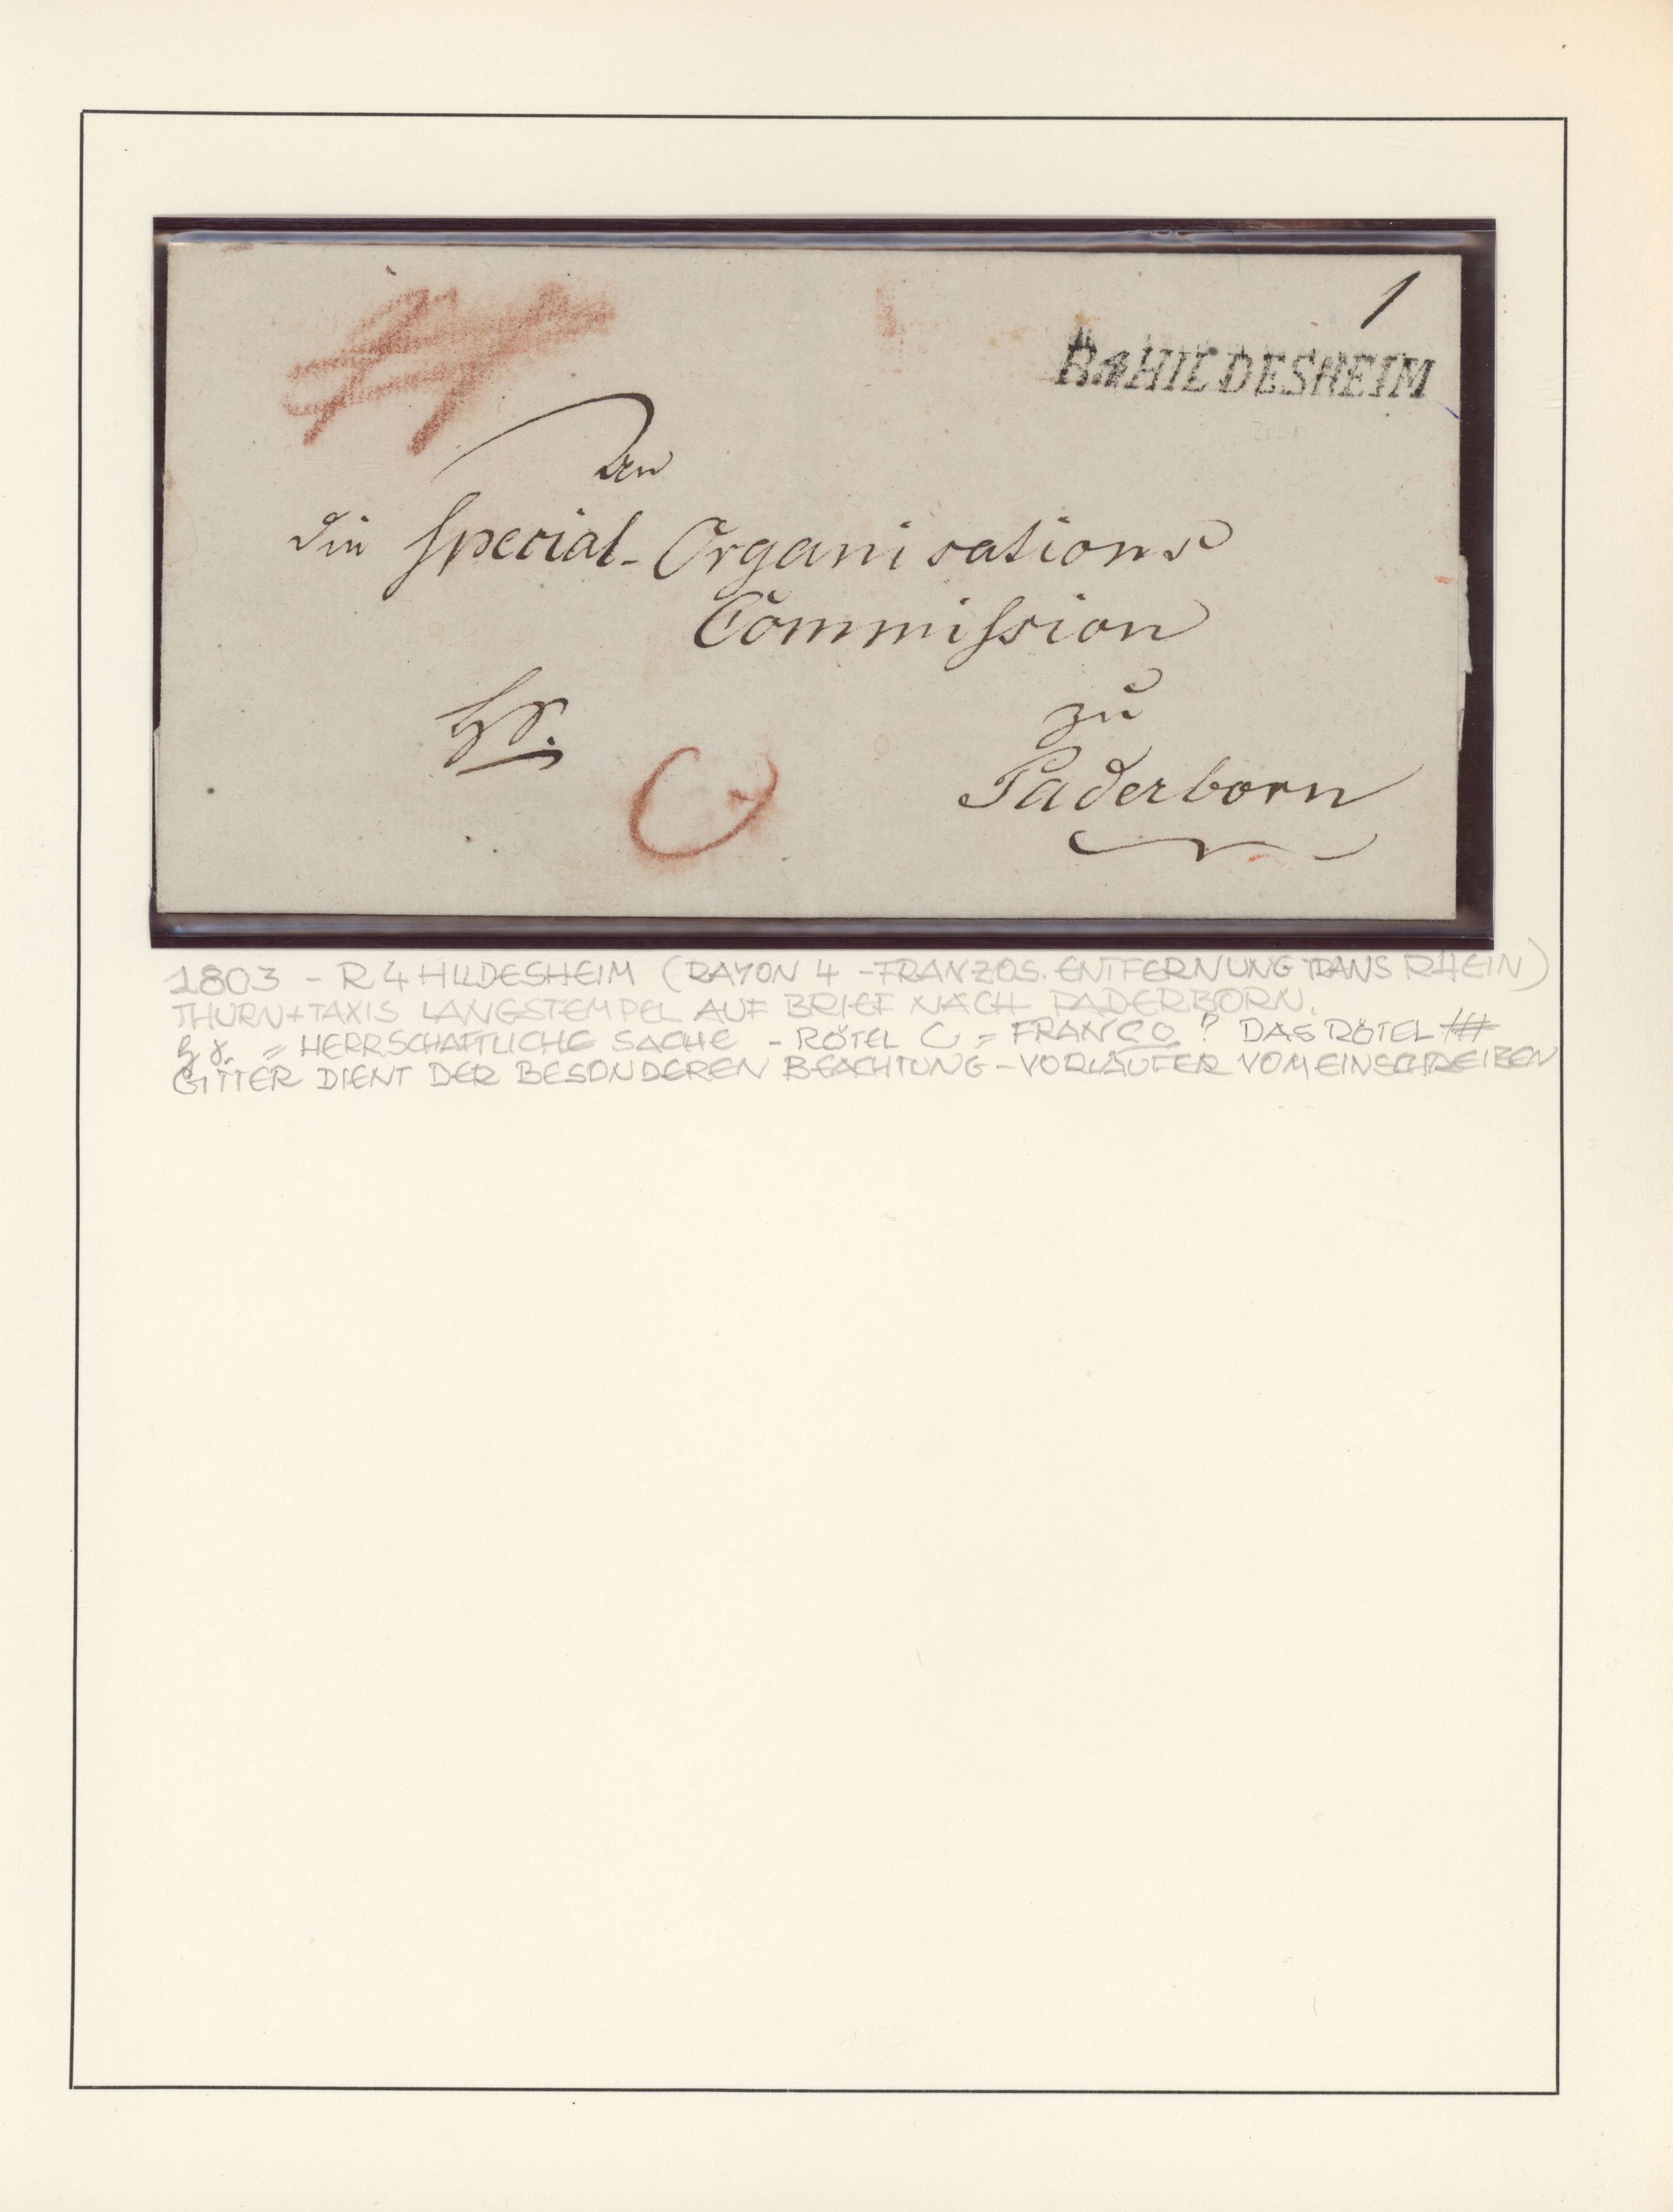 1
R.4 HILDESHEIM
An
die Special-Organisations
Commission
hs.
zu
Paderborn
C
1803 - R 4 HILDESHEIM (RAYON 4 - FRANZÖS. ENTFERNUNG TRANS RHEIN)
THURN + TAXIS LANGSTEMPEL AUF BRIEF NACH PADERBORN.
h s. = HERRSCHAFTLICHE SACHE - RÖTEL C = FRANCO ? DAS RÖTEL #
GITTER DIENT DER BESONDEREN BEACHTUNG - VORLÄUFER VOM EINSCHREIBEN